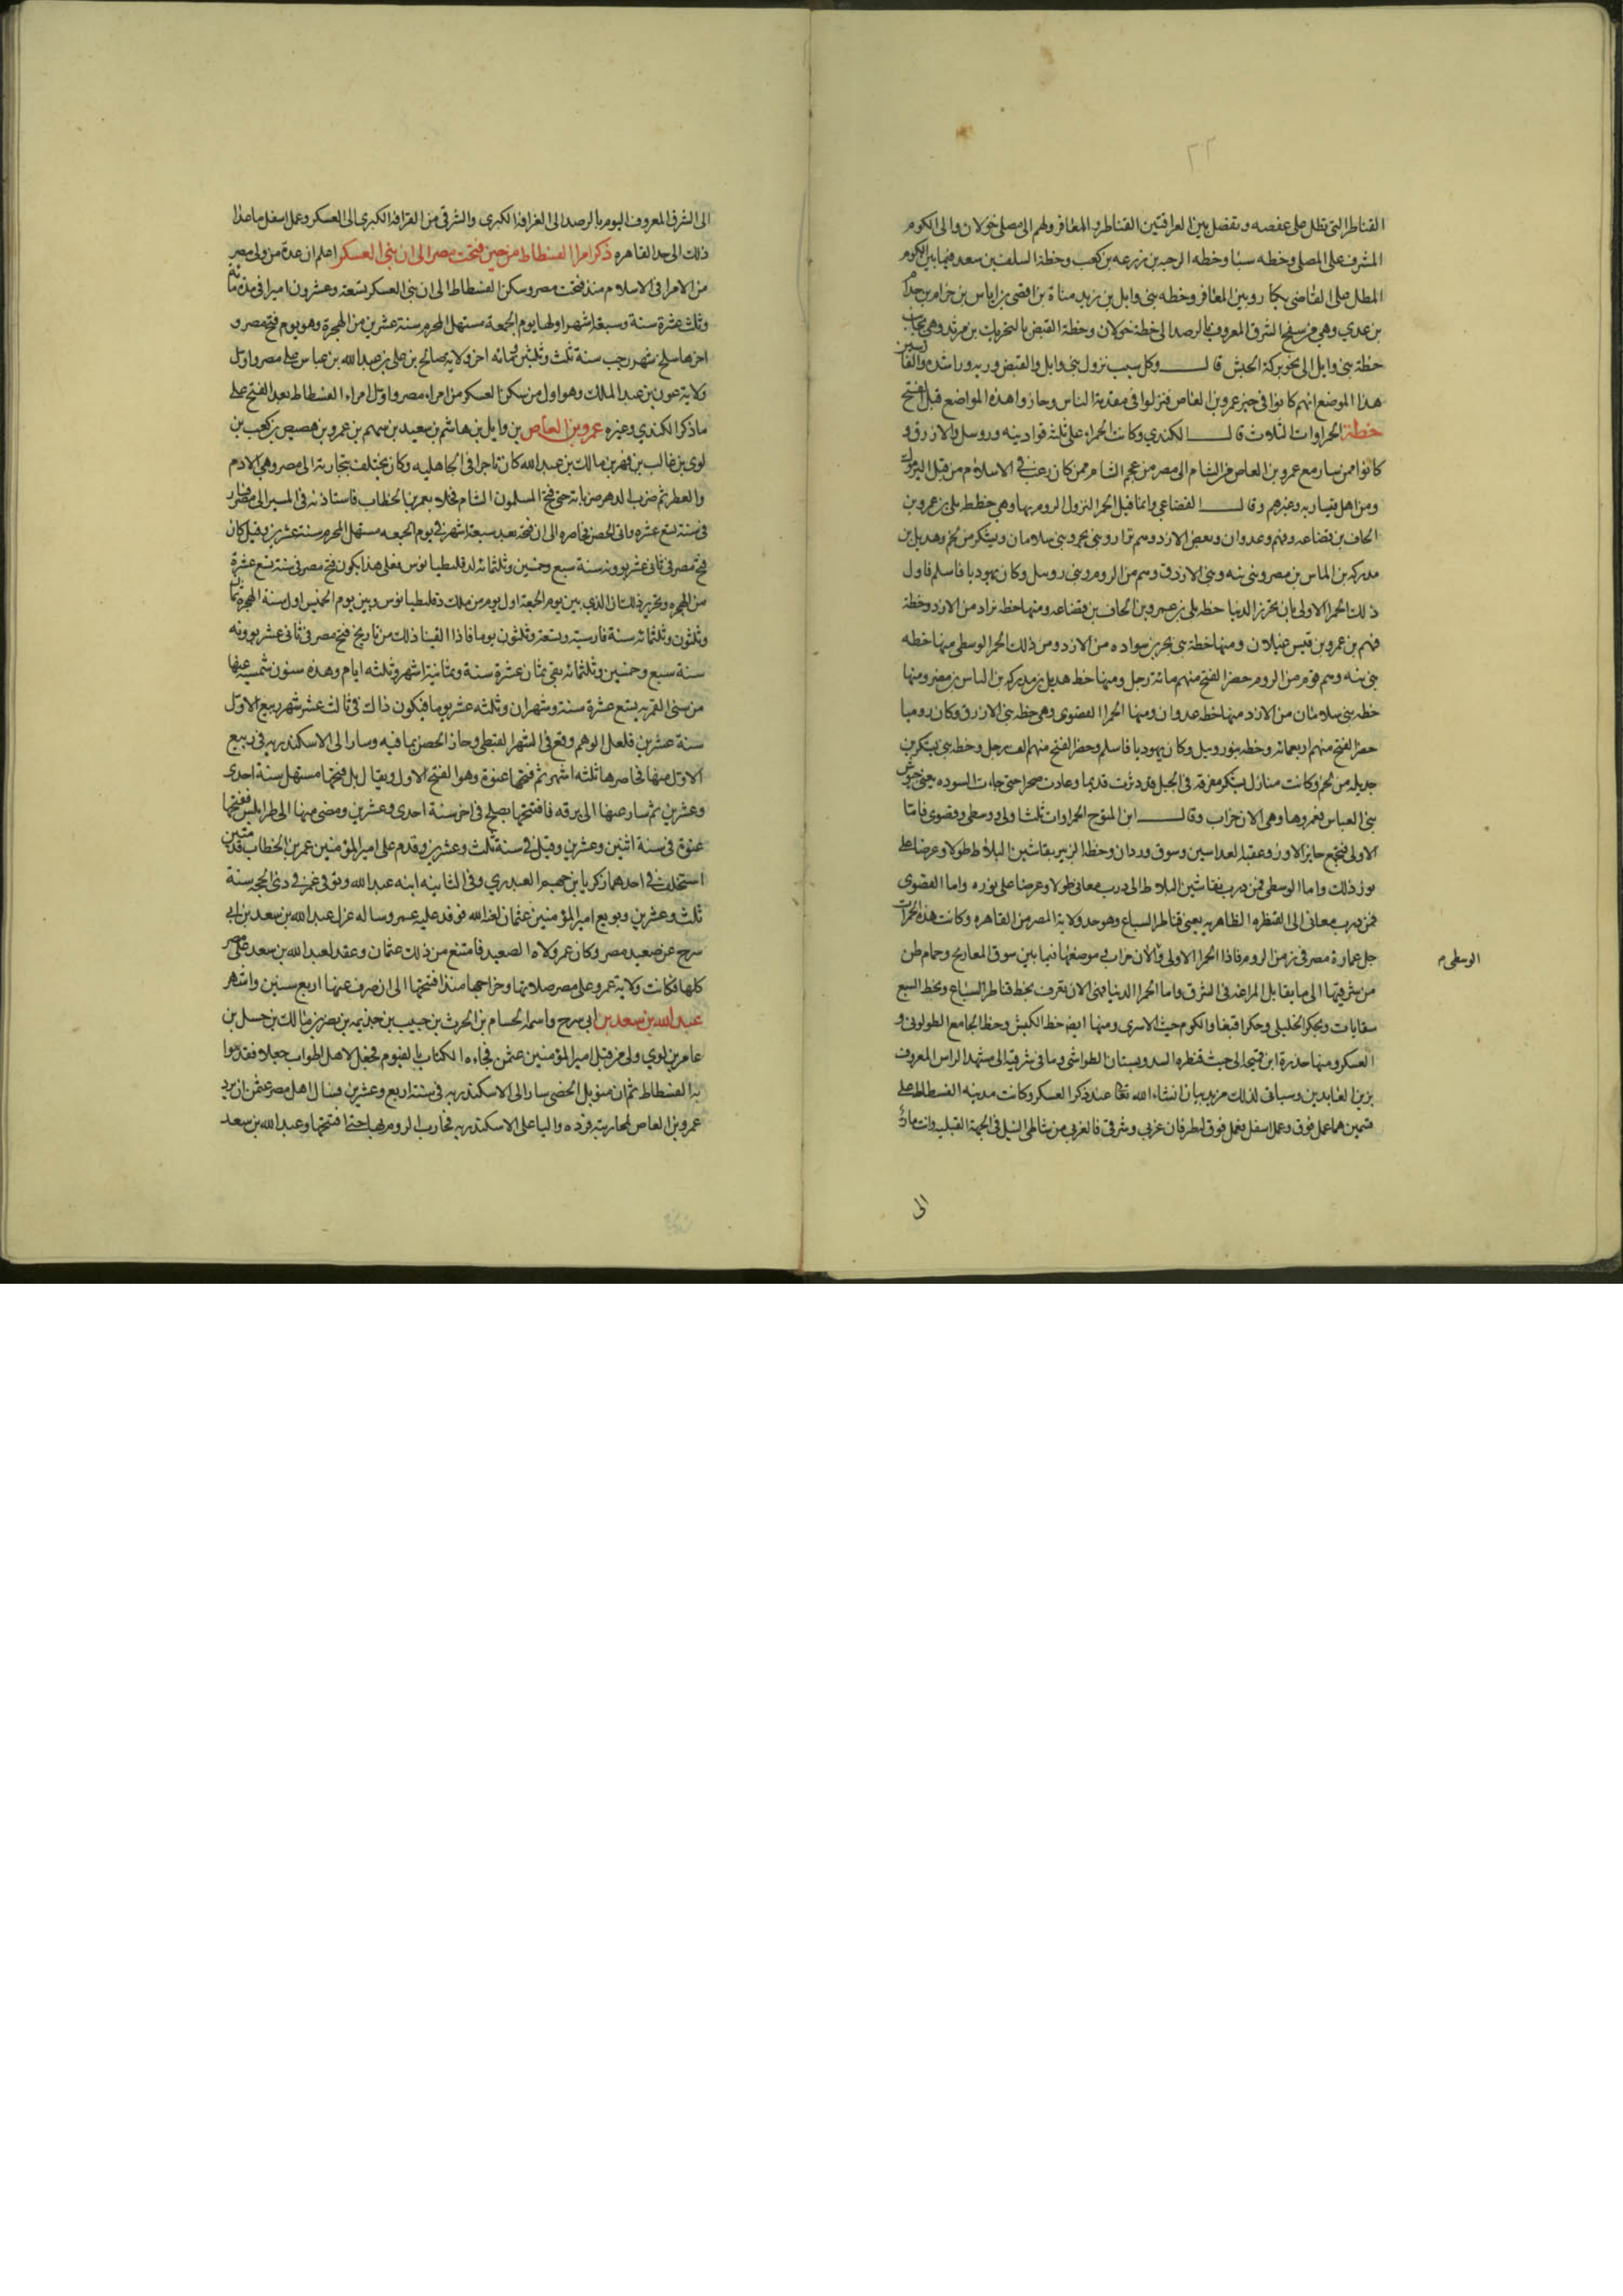 ٢٢
القناطر التي تطل على عفصه وتفصل بين القرافتين القناطر والمعافر ولهم الى مصلى خولان والى الكوم
المشرف على المصلى وخطه سبا وخطه الرحبه بن زرعه بن كعب وخطة السلف بن سعد فيما بين الكوم
المطل على القاضى بكار وبين المعافر وخطه بنى وايل بن زيد مناة بن افصى بن اياس بن حرام بن جذام
بن عدي وهى من سفح الشرف المعروف بالرصد الى خطة خولان وخطة القبض بالتحريك بن مرثد وهى بجانب
خطة بنى وايل الى نحو بركة الحبش قال وكان سبب نزول بنى وايل والقبض وريه وراشده والفارسين
هذا الموضع انهم كانوا فى حيز عمرو بن العاص فنزلوا فى مقدمة الناس وحازوا هذه المواضع قبل الفتح
خطة الحمراوات الثلاث قال الكندي وكانت الحمراء على ثلثة قواد بنه وروسل والازرق و
كانوا ممن سار مع عمرو بن العاص من الشام الى مصر من عجم الشام ممن كان رغب فى الاسلام من قبل اليرموك
ومن اهل قيساريه وغيرهم وقال القضاعي وانما قيل الحمرا لنزول الروم بها وهى خطط بلى بن عمرو بن
الحاف بن قضاعه وفهم وعدوان وبعض الازد وهم ثراد وبنى بحر وبنى سلامان ويشكر من لخم وهذيل بن
مدركه بن الياس بن مصر وبنى بنه وبنى الازرق وهم من الروم وبنى روسل وكان يهوديا فاسلم فاول
ذلك الحمرا الاولى خطه بلى بن عمرو بن الحاف بن قضاعه ومنها خطه ثراد من الازد وخطة
فهم بن عمرو بن قيس عيلان ومنها خطة بنى بحر بن سواده من الازد ومن ذلك الحمرا الوسطى منها خطه
بنى بنه وهم قوم من الروم حضر الفتح منهم مائة رجل ومنها خط هذيل بن مدركه بن الياس بن مضر ومنها
خطه بنى سلامان من الازد منها خط عدوان ومنها الحمرا القصوى وهى خطه بنى الازرق وكان روميا
حضر الفتح منهم اربعمائه وخطه بنو روبيل وكان يهوديا فاسلم وحضر الفتح منهم الف رجل وخطه بنى يشكر بن
جديله من لخم وكانت منازل يشكر مفرقه فى الجبل فدثرت قديما وعادت صحرا حتى جاءت السوده يعنى جيوش
بنى العباس فعمروها وهى الان خراب وقال ابن المتوج الحمراوات ثلث اولى ووسطى وقصوى فاما
الاولى فتجمع جابر الاور وعقبة العداسين وسوق وردان وخطة الزبير نقاشين البلاط طولا وعرضا على
ذلك واما الوسطى فمن درب نقاشين البلاط الى درب معانى طولا وعرضا على واما القصوى
فمن درب معانى الى القنطره الظاهريه يعنى قناطر السباع وهو حد ولاية المصر من القاهره وكانت هذه الحمراوات
جل عمارة مصر فى زمن الروم فاذا الحمرا الاولى والان خراب موضعها فيما بين سوق المعاريج وحمام طن
الوسطى م
من شرقيها الى ما يقابل المراغه فى الشرق واما الحمرا الدنيا فهى الان تعرف بخط قناطر السباع وبخط السبع
سقايات وبحكر الخليلى وحكر اقبغا والكوم حيث الاسرى ومنها ايضا خط الكبش وخط الجامع الطولونى و
العسكر ومنها حدرة ابن قميحه الى حيث قنطره السد وبستان الطواشى وما فى شرقيه الى مشهد الراس المعروف
بزين العابدين وسياتى لذلك مزيد بيان ان شاء الله تعا عند ذكر العسكر وكانت مدينه الفسطاط على
قسمين هما عمل فوق وعمل اسفل فعمل فوق له طرفان غربى وشرقى فالغربى من شاطى النيل فى الجهة القبليه وانت مار
الى
الى الشرف المعروف اليوم بالرصد الى القرافة الكبرى والشرقى من القرافة الكبرى الى العسكر وعمل اسفل ما عدا
ذلك الى حد القاهره ذكر امرا الفسطاط من حين فتحت مصر الى ان بنى العسكر اعلم ان عدة من ولى مصر
من الامرا فى الاسلام منذ فتحت مصر وسكن الفسطاط الى ان بنى العسكر تسعة وعشرون اميرا فى مدة ماية
وثلث عشرة سنة وسبعة اشهر اولها يوم الجمعة مستهل المحرم سنة عشرين من الهجرة وهو يوم فتح مصر و
اخرها سلخ شهر رجب سنة ثلث وثلثين ومائه اخر ولايه صالح بن على بن عبد الله بن عباس على مصر واول
ولاية عون بن عبد الملك وهو اول من سكن العسكر من امراء مصر واول امراء الفسطاط بعد الفتح على
ما ذكر الكندي وغيره عمرو بن العاص بن وايل بن هاشم بن سعيد بن سهم بن عمرو بن هصيص بن كعب بن
لوى بن غالب بن فهر بن مالك بن عبد الله كان تاجرا فى الجاهليه وكان يختلف بتجارته الى مصر وهى الادم
والعطر ثم ضرب الدهر ضرباته حتى فتح المسلمون الشام فخلا بعمر بن الخطاب فاستاذنه فى المسير الى مصر فسار
فى سنة تسع عشره واتى الحصن فحاصره الى ان فتحه بعد سبعة اشهر فى يوم الجمعه مستهل المحرم سنة عشرين وقيل كان
فتح مصر فى ثانى عشر بوونه سنة سبع وخمسين وثلثمائه لدقلطيانوس فعلى هذا يكون فتح مصر فى سنة تسع عشرة
من الهجره وتحرير ذلك ان الذي بين يوم الجمعة اول يوم من ملك دقلطيانوس وبين يوم الخميس اول سنة الهجرة ثمان
وثلثون وثلثمائه سنة فارسيه وتسعة وثلثون يوما فاذا القينا ذلك من تاريخ فتح مصر فى ثانى عشر بوونه
سنة سبع وخمسين وثلثمائه بقى ثمان عشرة سنة وثمانية اشهر وثلثه ايام وهذه سنون شمسيه عنها
من سنى القمريه تسع عشرة سنة وشهران وثلثه عشر يوما فيكون ذلك فى ثالث عشر شهر ربيع الاول
سنة عشرين فلعل الوهم وقع فى الشهر القبطى وحاز الحصن بما فيه وسار الى الاسكندريه فى ربيع
الاول منها فحاصرها ثلثه اشهر ثم فتحها عنوة وهو الفتح الاول ويقال بل فتحها مستهل سنة احدى
وعشرين ثم سار عنها الى برقه فافتتحها بصلح فى اخر سنة احدى وعشرين ومضى منها الى طرابلس ففتحها
عنوة فى سنة اثنين وعشرين وقيل فى سنة ثلث وعشرين وقدم على امير المؤمنين عمر بن الخطاب قدمتين
استخلف فى احدهما زكريا بن جهيم العبدري وفى الثانيه ابنه عبد الله وتوفى عمر فى ذى الحجه سنة
ثلث وعشرين وبويع امير المؤمنين عثمان فوفد عليه عمرو وساله عزل عبد الله بن سعد بن ابى
سرح عن صعيد مصر وكان عمر ولاه الصعيد فامتنع من ذلك عثمان وعقد لعبد الله بن سعد على مصر
كلها فكانت ولاية عمرو على مصر صلاتها وخراجها منذ افتتحها الى ان صرف عنها اربع سنين واشهر
عبد الله بن سعد بن ابى سرح واسمه الحسام بن الحرث بن حبيب بن جذيمه بن نصر بن مالك بن حسل بن
عامر بن لوي ولى من قبل امير المؤمنين عثمن فجاءه الكتاب بالفيوم فجعل لاهل اطواب جعلا فقدموا
به الفسطاط ثم ان منويل الخصى سار الى الاسكندريه فى سنة اربع وعشرين فسال اهل مصر عثمن ان يرد
عمرو بن العاص لمحاربته فرده واليا على الاسكندريه فحارب الروم بها حتى افتتحها وعبد الله بن سعد